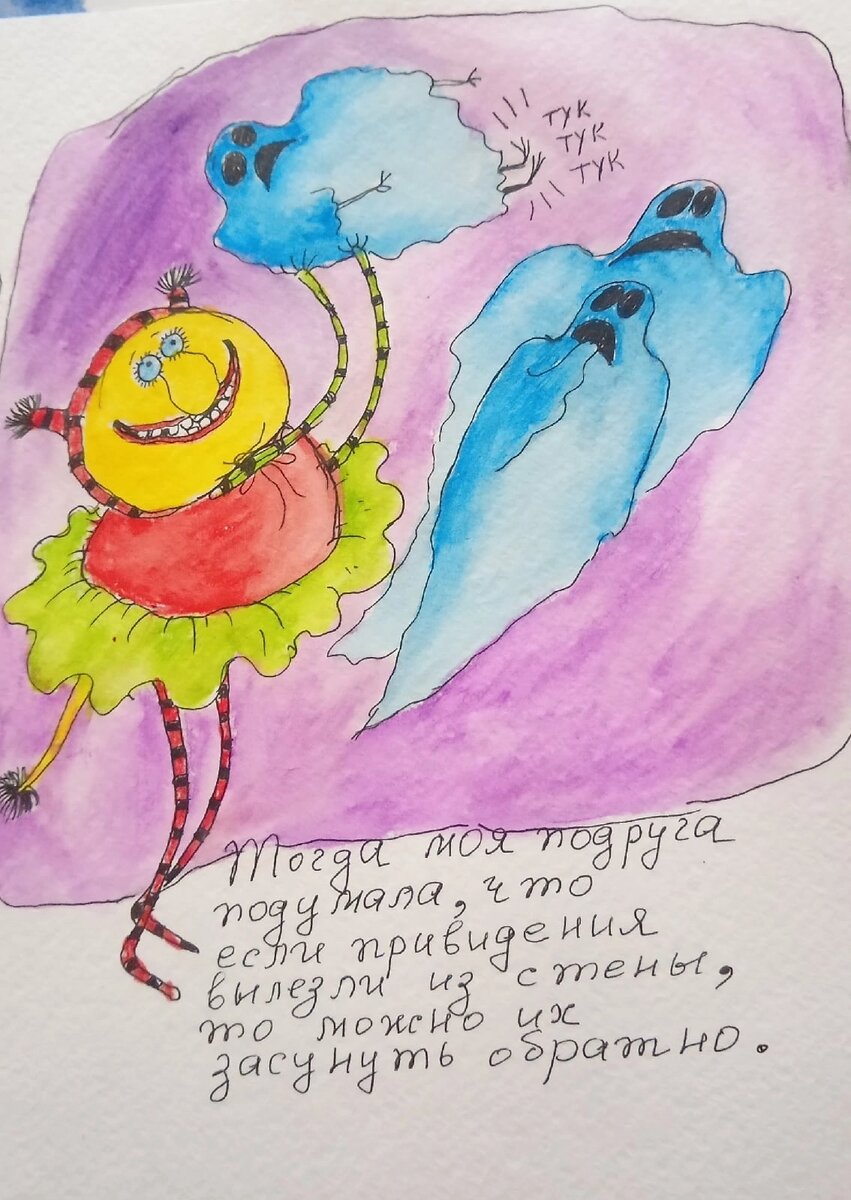 тук
тук
тук
Тогда моя подруга
подумала, что
если привидения
вылезли из стены,
то можно их
засунуть обратно.